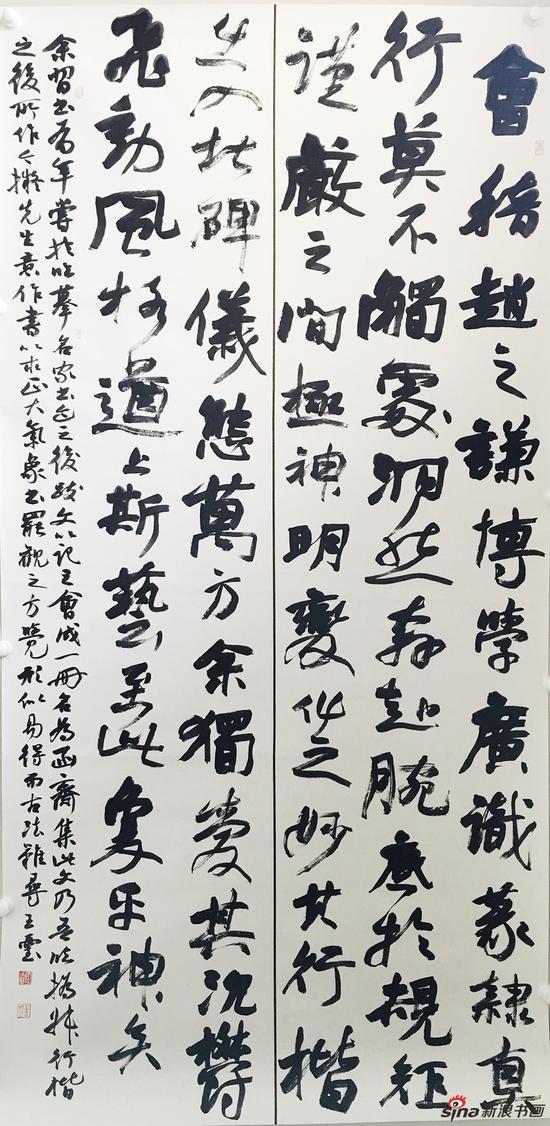 會稽趙之謙博學廣識篆隸真
行莫不觸處然奔赴腕底於規矩
謹嚴之間極神明變化之妙其行楷
出入北碑儀態萬方余獨愛其沉鬱
飛動風格遒上斯藝至此乎神矣
余習書有年嘗於臨摹名家書迹之後跋文以記之會成一冊名為齋集此文乃吾臨撝叔行楷
之後所作今擬先生意作書以求正大氣象書罷觀之方覺形似易得而古法難尋王雲
sina新浪书画